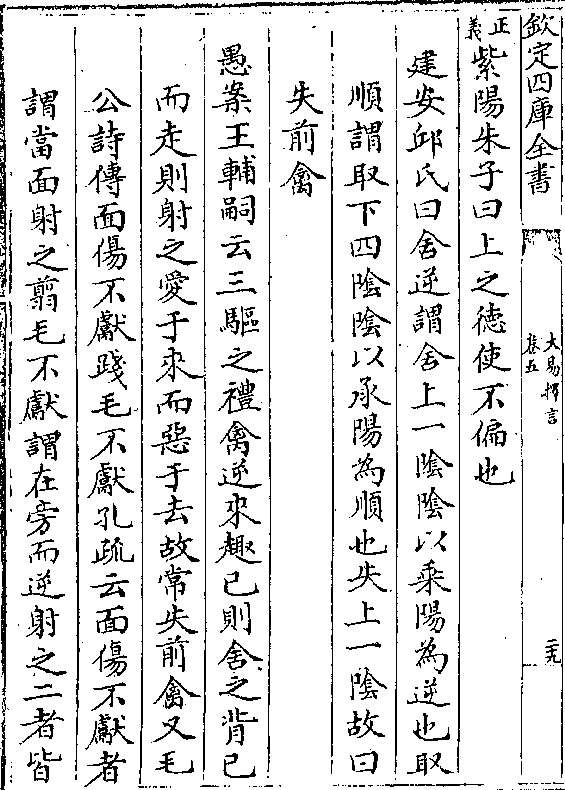 欽定四庫全書
大易擇言
卷五
二九
正義
紫陽朱子曰上之德使不偏也
建安邱氏曰舍逆謂舍上一陰陰以乘陽為逆也取
順謂取下四陰陰以承陽為順也失上一陰故曰
失前禽
愚案王輔嗣云三驅之禮禽逆來趣己則舍之背己
而走則射之愛于來而惡于去故常失前禽又毛
公詩傳面傷不獻踐毛不獻孔疏云面傷不獻者
謂當面射之翦毛不獻謂在旁而逆射之二者皆